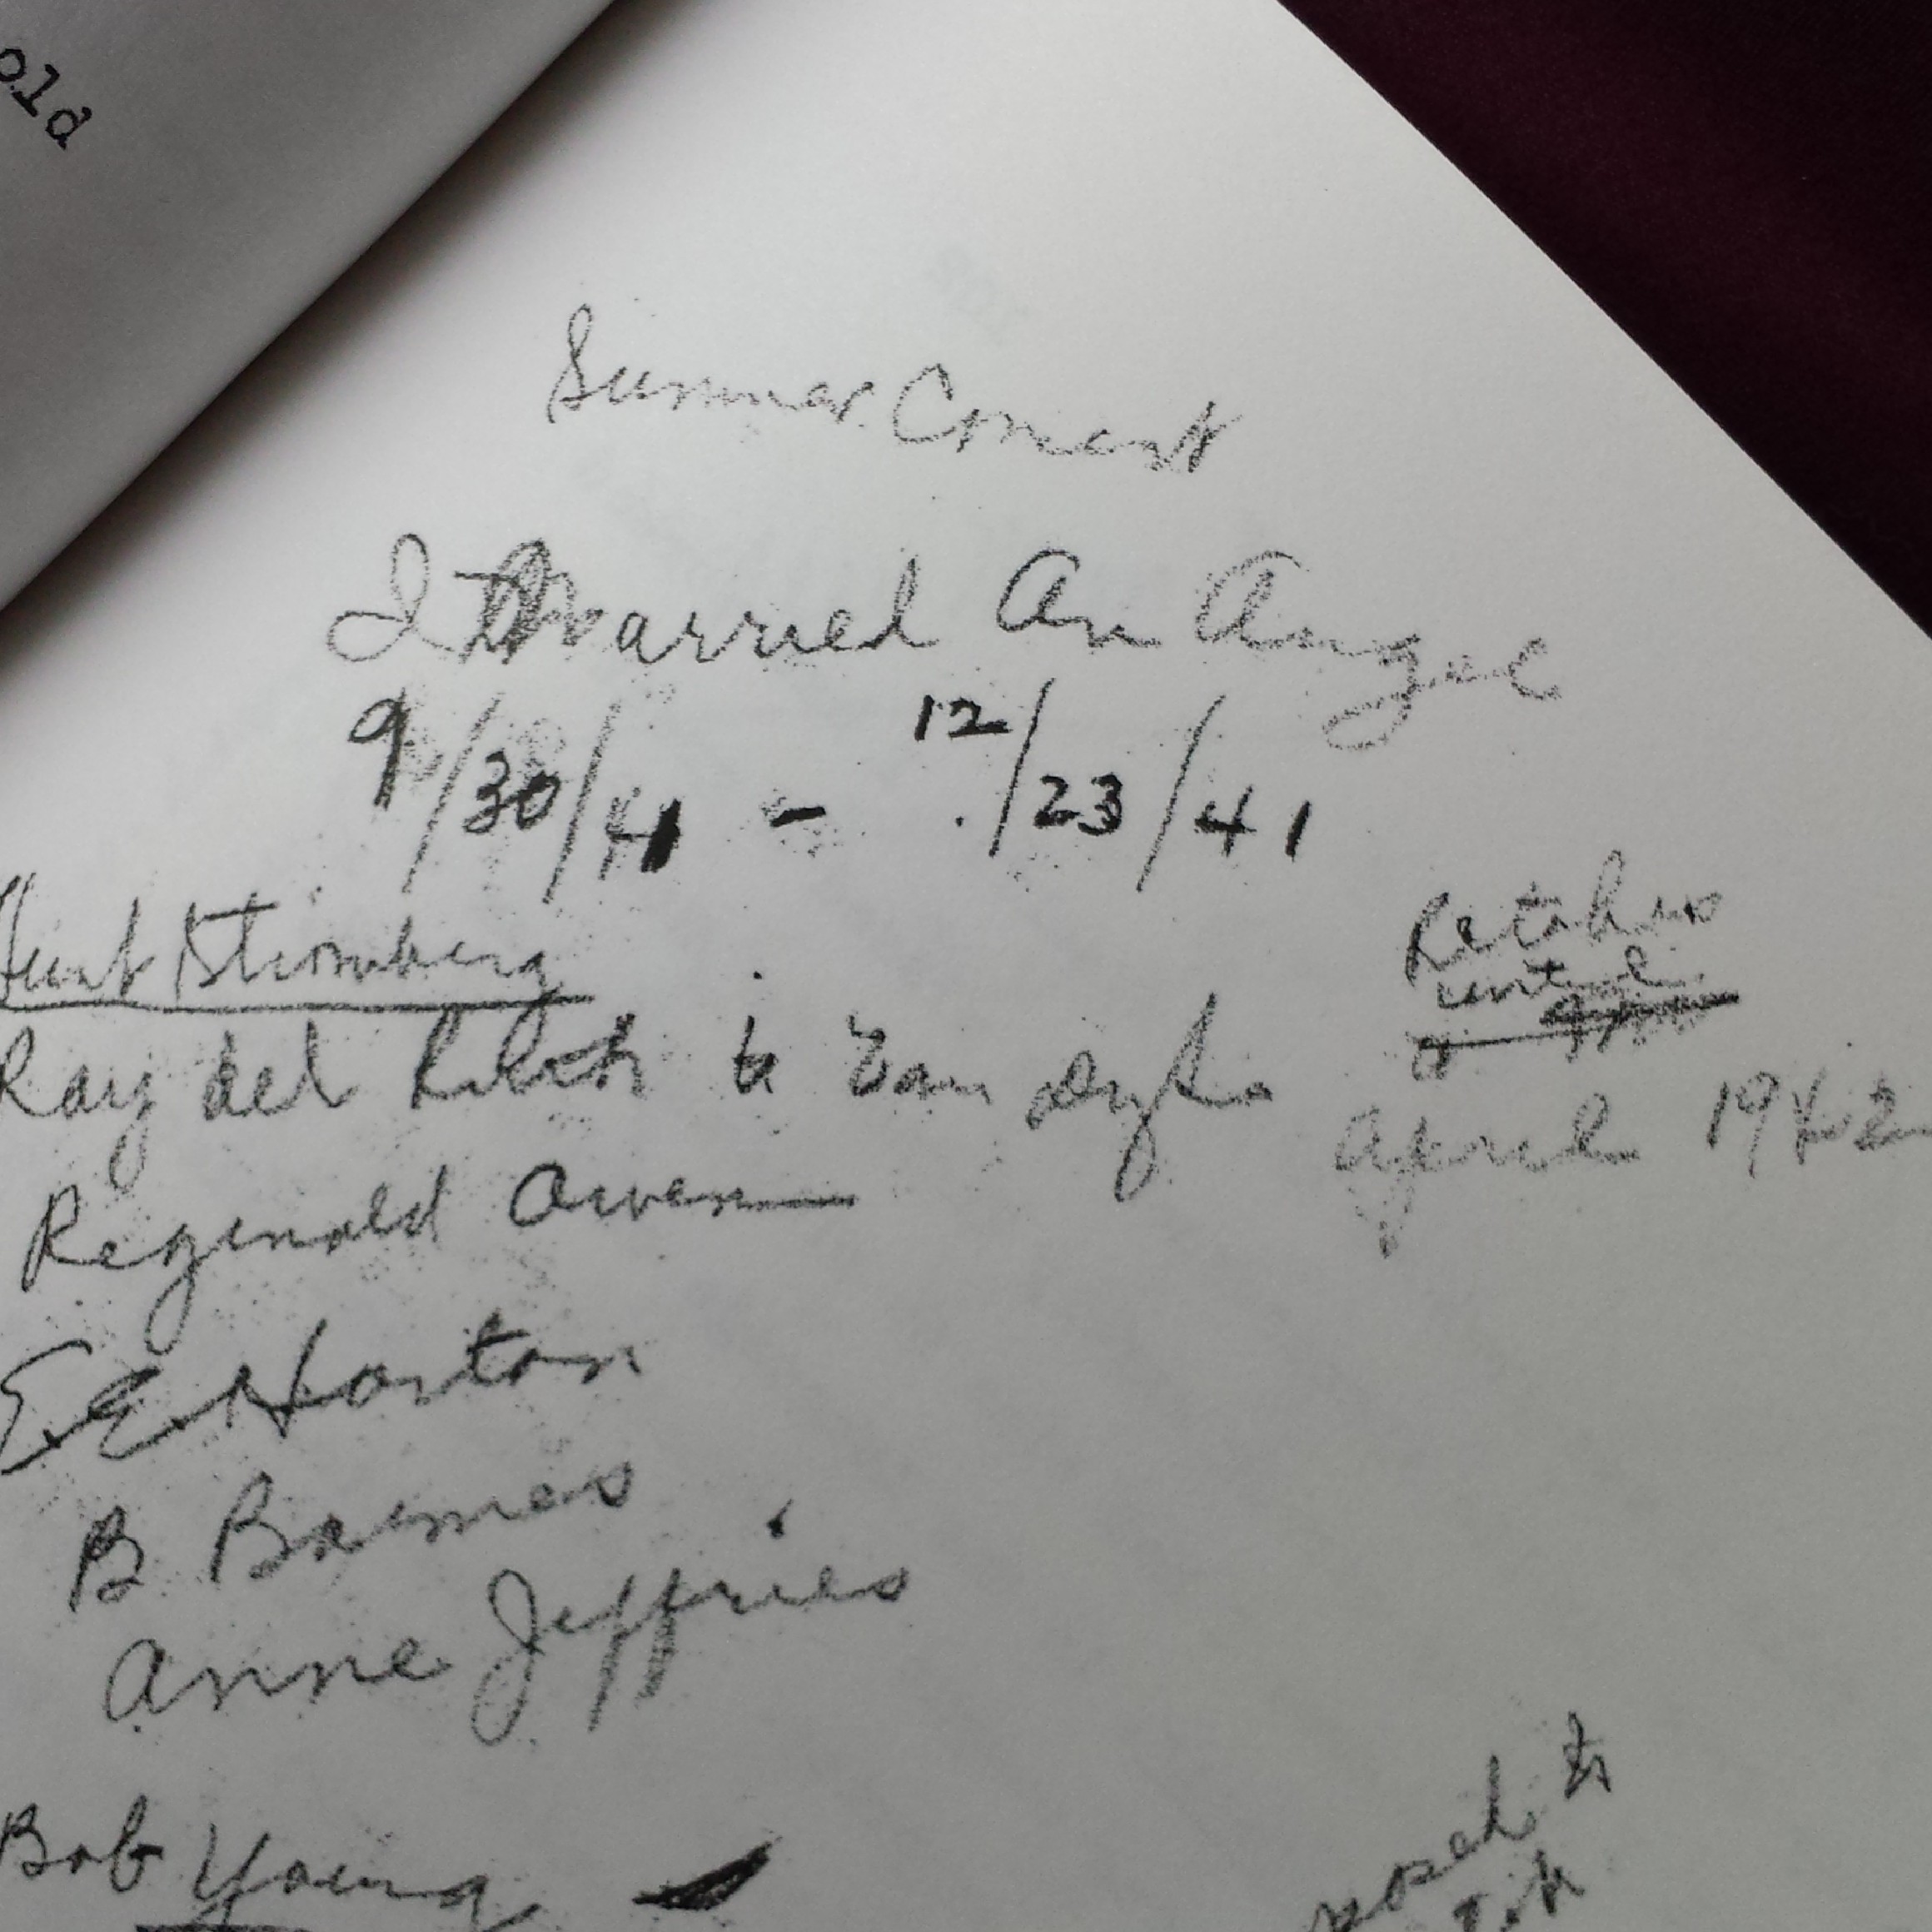 old
Summer
I Married An Angel
9/30/41 - 12/23/41
Hunt Stromberg
Retakes
until
Ray del to Van Dyke
April 1942
Reginald Owen
E. E. Horton
B Barnes
Anne Jeffries
Bob Young